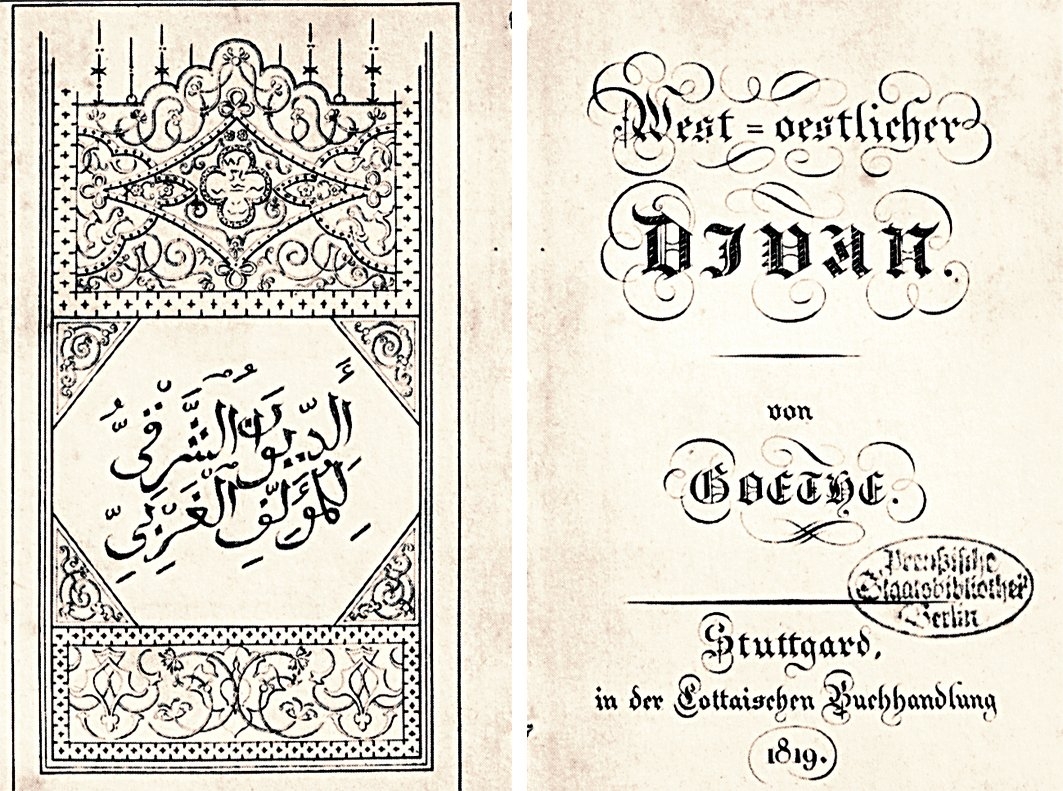 أَلدِّيوَانُ الشَّرْقِيُّ
لِلْمُؤَلِّفِ الْغَرْبِيِّ
West=oestlicher
DIVAN.
von
GOETHE.
Preußische
Staatsbibliothek
Berlin
Stuttgard,
in der Cottaischen Buchhandlung
1819.